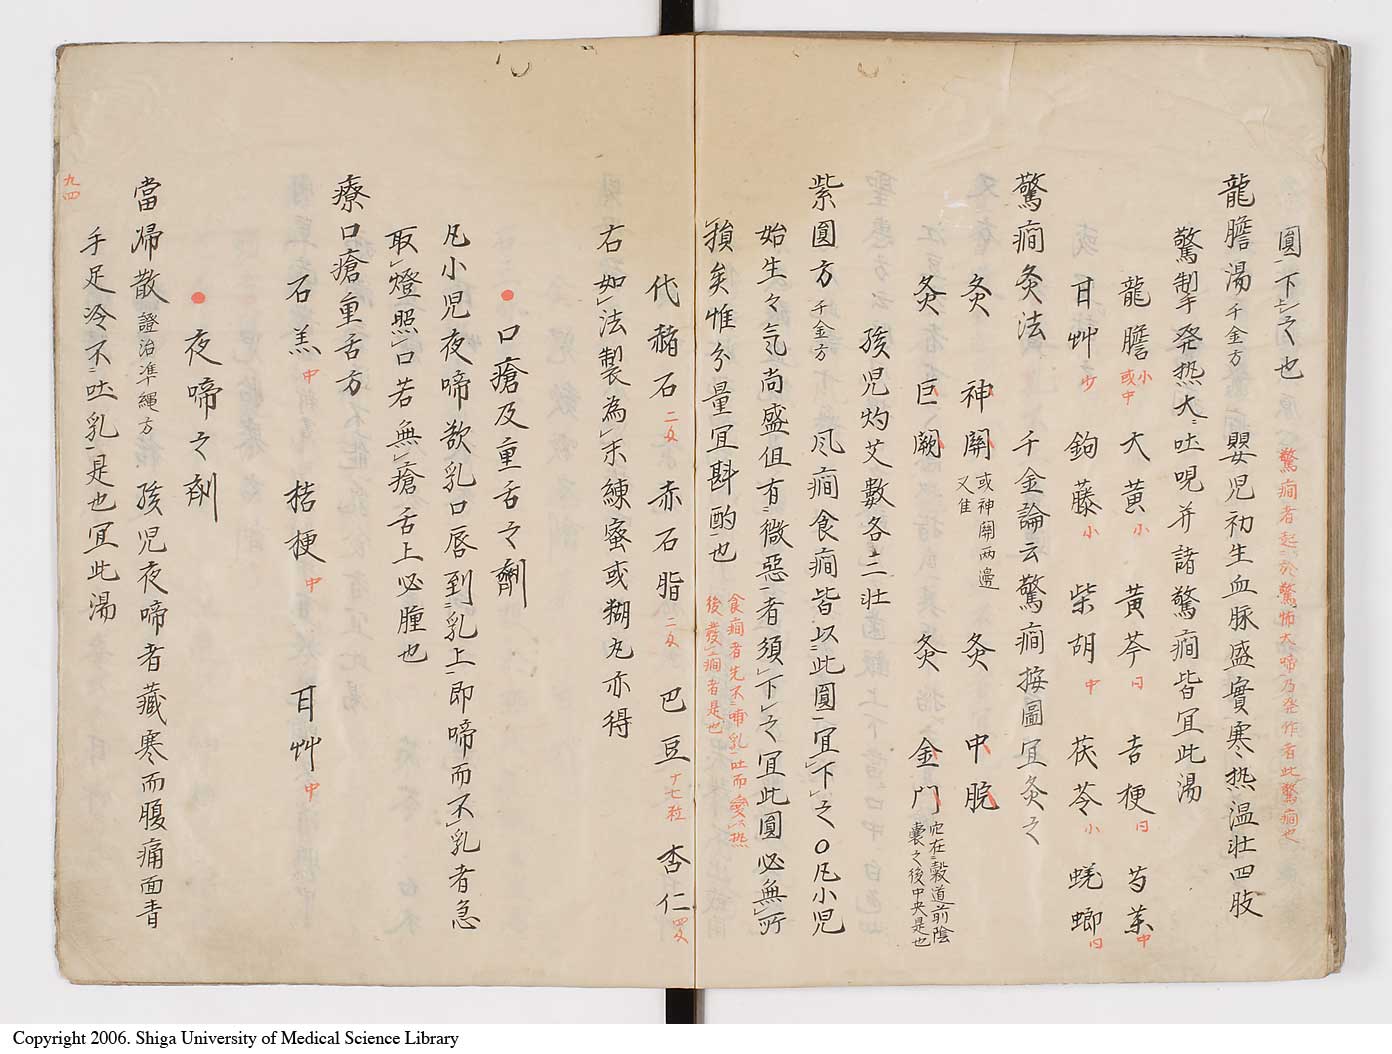 圓下之也
驚癇者起於驚怖大啼乃発作者此驚癇也
龍膽湯 千金方 嬰児初生血脉盛實寒热温壮四肢
驚掣発热大吐呪并諸驚癇皆宜此湯
龍膽 小或中 大黄 小 黄芩 同 吉梗 同 芍薬 中
甘艸 少 鉤藤 小 柴胡 中 茯苓 小 蜣蜋 同
驚癇灸法 千金論云驚癇按圖宜灸之
灸 神闕 或神闕両邊又隹 灸 中脘
灸 巨闕 灸 金門 穴在穀道前陰嚢之後中央是也
孩児灼艾數各二壮
紫圓方 千金方 风癇食癇皆以此圓宜下之○凡小児
始生々気尚盛但有微惡者須下之宜此圓必無所
損矣惟分量宜斟酌也
食癇者先不哺乳吐而変热
後發癇者是也
代赭石 二匁 赤石脂 二匁 巴豆 十七粒 杏仁 四匁
右如法製為末練蜜或糊丸亦得
● 口瘡及重舌之劑
凡小児夜啼欲乳口唇到乳上即啼而不乳者急
取燈照口若無瘡舌上必腫也
療口瘡重舌方
石羔 中 桔梗 中 甘艸 中
● 夜啼之剤
當帰散 證治準縄方 孩児夜啼者藏寒而腹痛面青
手足冷不吐乳是也宜此湯
九四
Copyright 2006. Shiga University of Medical Science Library